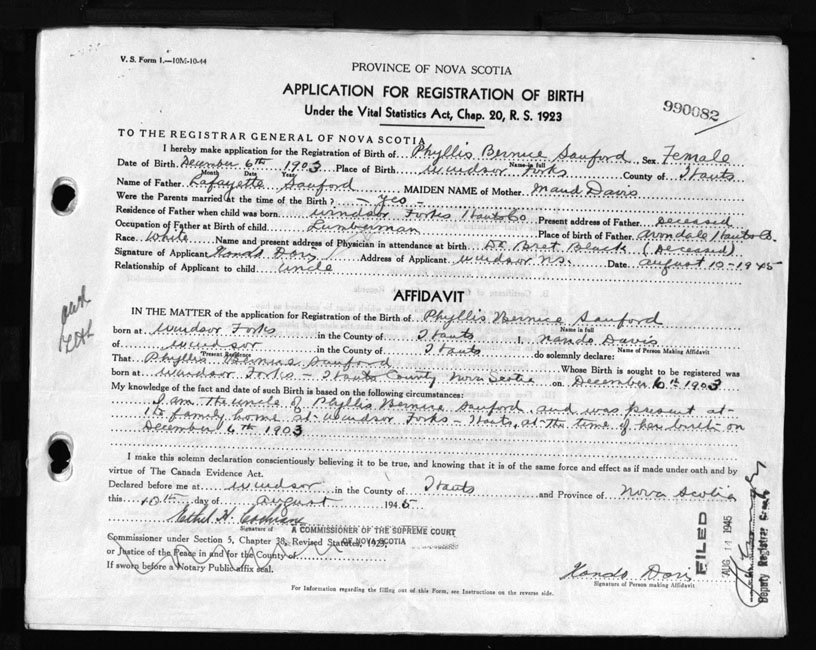 V. S. Form 1.—10M-10-44
PROVINCE OF NOVA SCOTIA
APPLICATION FOR REGISTRATION OF BIRTH
Under the Vital Statistics Act, Chap. 20, R. S. 1923
990082
TO THE REGISTRAR GENERAL OF NOVA SCOTIA
I hereby make application for the Registration of Birth of Phyllis Bernice Sanford Sex Female
Name in full
Date of Birth December 6th 1903 Place of Birth Windsor Forks County of Hants
Month Date Year
Name of Father Lafayette Sanford MAIDEN NAME of Mother Maud Davis
Were the Parents married at the time of the Birth? — Yes —
Residence of Father when child was born Windsor Forks Hants Co Present address of Father Deceased
Occupation of Father at Birth of child Lumberman Place of birth of Father Avondale Hants Co.
Race White Name and present address of Physician in attendance at birth Dr Bret Black (Deceased)
Signature of Applicant Address of Applicant Windsor N.S. Date August 10 - 1945
Relationship of Applicant to child Uncle
AFFIDAVIT
IN THE MATTER of the application for Registration of the Birth of Phyllis Bernice Sanford
Name in full
born at Windsor Forks in the County of Hants I, Davis
Name of Person Making Affidavit
of Windsor in the County of Hants do solemnly declare:
Present Residence
That Phyllis Bernice Sanford Whose Birth is sought to be registered was
born at Windsor Forks — Hants County Nova Scotia on December 6th 1903
My knowledge of the fact and date of such Birth is based on the following circumstances:
I am the uncle of Phyllis Bernice Sanford and was present at
the family home at Windsor Forks — Hants, at the time of her birth on
December 6th 1903
I make this solemn declaration conscientiously believing it to be true, and knowing that it is of the same force and effect as if made under oath and by
virtue of The Canada Evidence Act.
Declared before me at Windsor in the County of Hants and Province of Nova Scotia
this 10th day of August 1945
Ethel H. Cochrane
Signature of
A COMMISSIONER OF THE SUPREME COURT
OF NOVA SCOTIA
Commissioner under Section 5, Chapter 38, Revised Statutes, 1923,
or Justice of the Peace in and for the County of
If sworn before a Notary Public affix seal.
Davis
Signature of Person making Affidavit
For Information regarding the filling out of this Form, see Instructions on the reverse side.
FILED
AUG 11 1945
Deputy Registrar